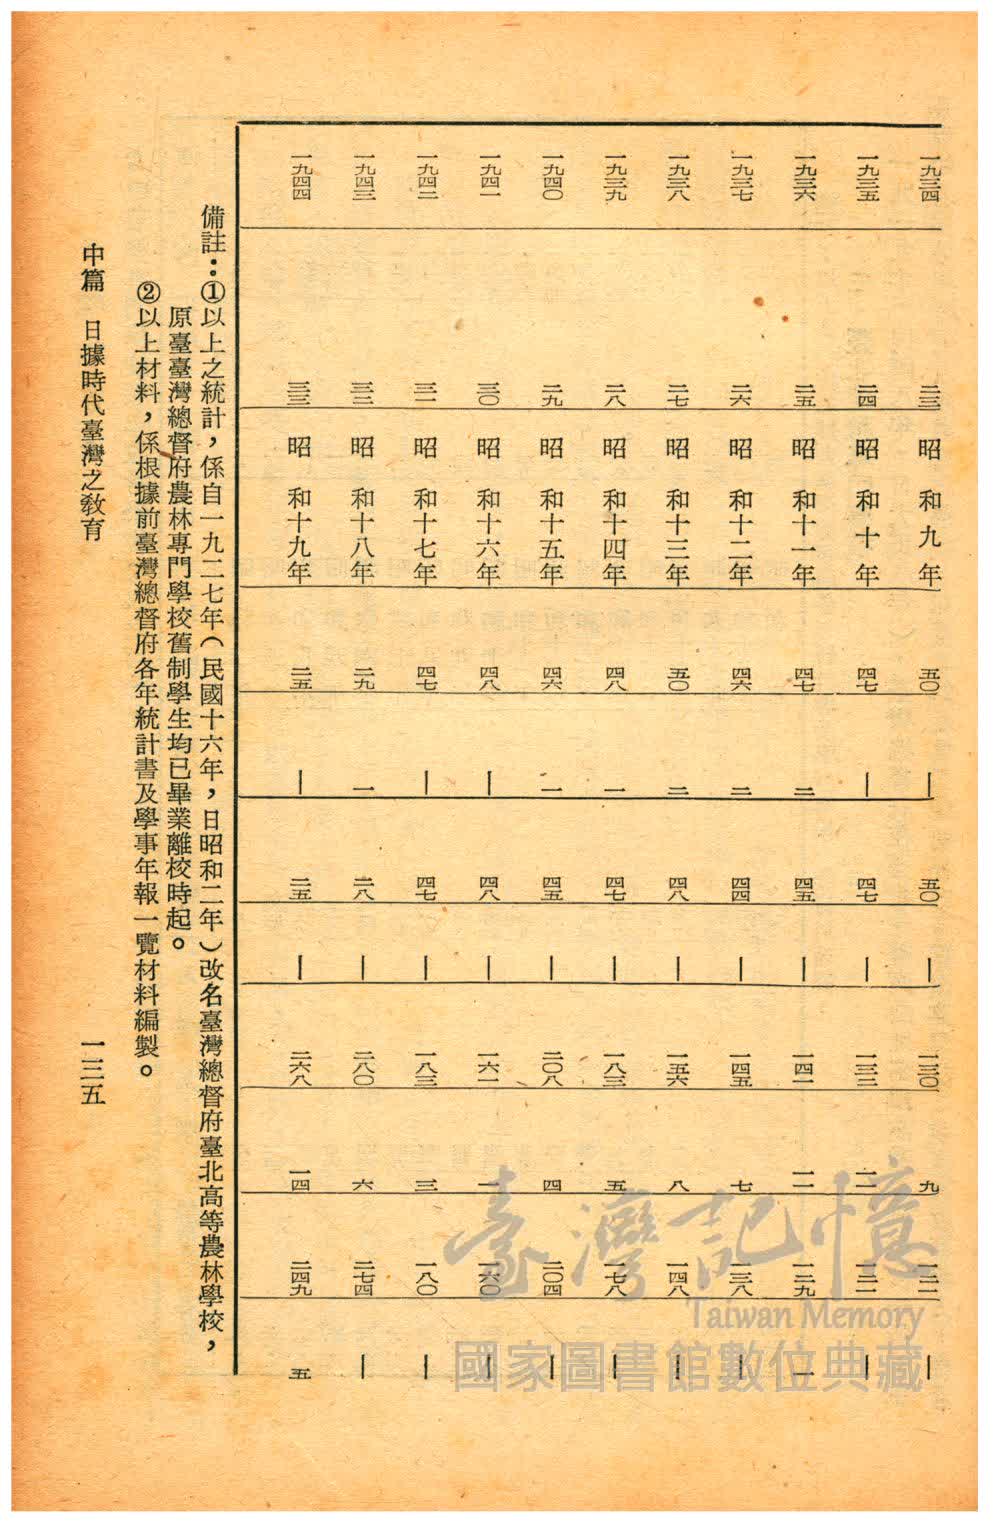 一九三四 二三 昭和九年 五〇 — 五〇 — 一三〇 九 一二一 —
一九三五 二四 昭和十年 四七 — 四七 — 一三三 一二 一二一 —
一九三六 二五 昭和十一年 四七 二 四五 — 一四一 一一 一二九 一
一九三七 二六 昭和十二年 四六 二 四四 — 一四五 七 一三八 —
一九三八 二七 昭和十三年 五〇 二 四八 — 一五六 八 一四八 —
一九三九 二八 昭和十四年 四八 一 四七 — 一八三 五 一七八 —
一九四〇 二九 昭和十五年 四六 一 四五 — 二〇八 四 二〇四 —
一九四一 三〇 昭和十六年 四八 — 四八 — 一六一 一 一六〇 —
一九四二 三一 昭和十七年 四七 — 四七 — 一八三 三 一八〇 —
一九四三 三二 昭和十八年 二九 一 二八 — 二八〇 六 二七四 —
一九四四 三三 昭和十九年 二五 — 二五 — 二六八 一四 二四九 五
備註：①以上之統計，係自一九二七年（民國十六年，日昭和二年）改名臺灣總督府臺北高等農林學校，
原臺臺灣總督府農林專門學校舊制學生均已畢業離校時起。
②以上材料，係根據前臺灣總督府各年統計書及學事年報一覽材料編製。
中篇　日據時代臺灣之敎育　一三五
臺灣記憶
Taiwan Memory
國家圖書館數位典藏